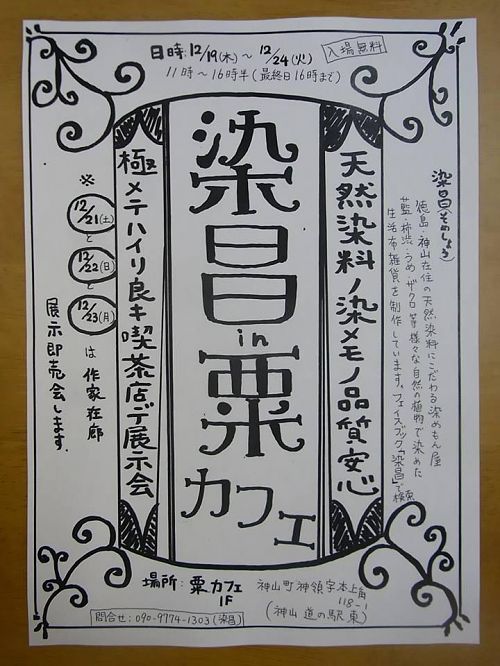 日時:12/19(木)～12/24(火)
入場無料
11時～16時半(最終日16時まで)
染昌(そめしょう)
徳島・神山在住の天然染料にこだわる染めもん屋
藍・柿渋・うめ・ザクロ等様々な自然の植物で染めた
生活布雑貨を制作しています。フェイスブック「染昌」で検索
天然染料ノ染メモノ品質安心
染昌
in
粟
カフェ
極メテハイリ良キ喫茶店デ展示会
※
12/21(土)
と
12/22(日)
と
12/23(月)
は 作家在廊
展示即売会します。
場所:粟カフェ
1F
神山町神領字本上角
118-1
(神山 道の駅東)
問合せ:090-9774-1303(染昌)